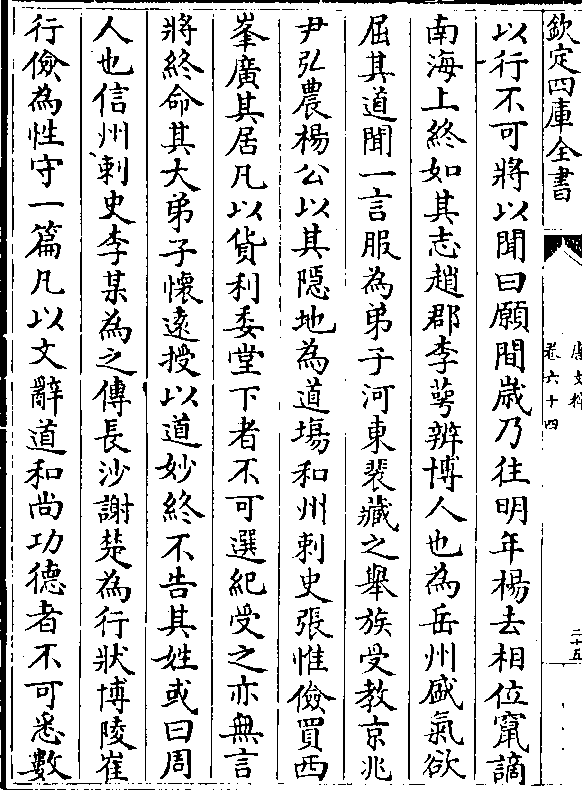 欽定四庫全書
唐文粹
卷六十四
二十五
以行不可將以聞曰願間歲乃往明年楊去相位竄謫
南海上終如其志趙郡李萼辨博人也為岳州盛氣欲
屈其道聞一言服為弟子河東裴藏之舉族受教京兆
尹弘農楊公以其隠地為道塲和州刺史張惟儉買西
峯廣其居凡以貨利委堂下者不可選紀受之亦無言
將終命其大弟子懷逺授以道妙終不告其姓或曰周
人也信州刺史李某為之傳長沙謝楚為行狀博陵崔
行儉為性守一篇凡以文辭道和尚功德者不可悉數